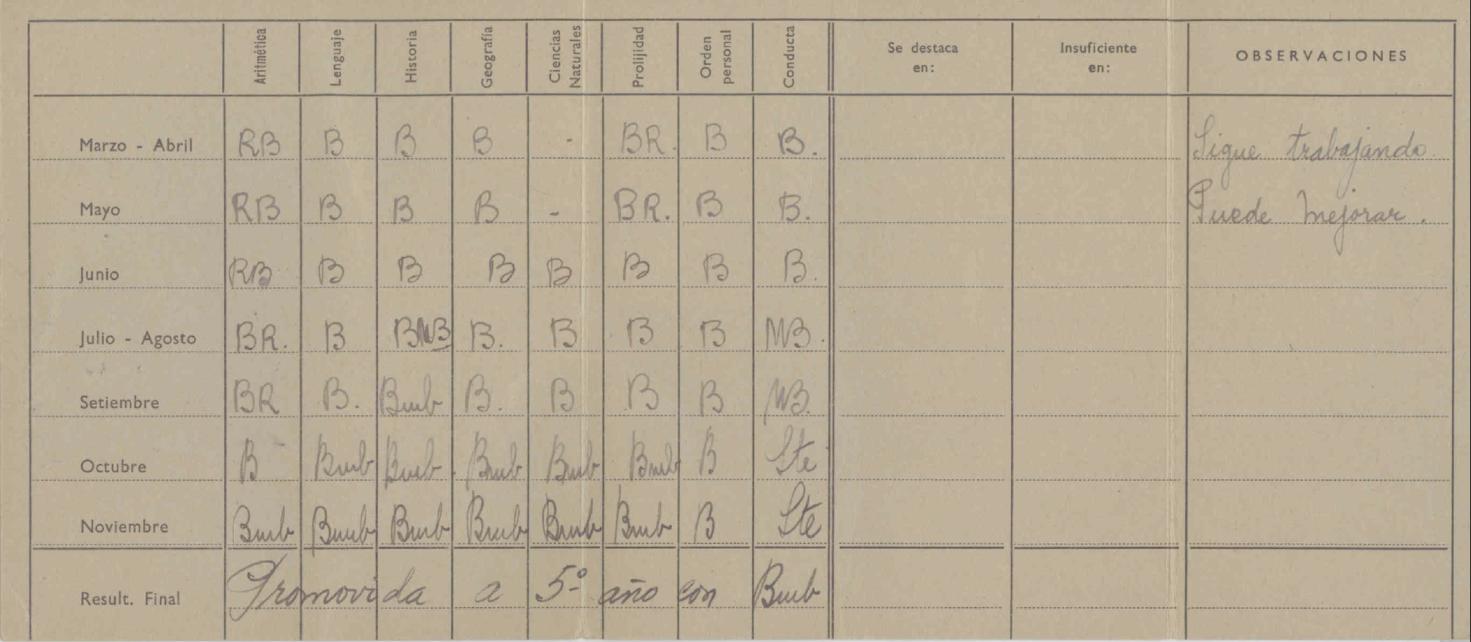 Aritmética Lenguaje Historia Geografía Ciencias Naturales Prolijidad Orden personal Conducta Se destaca en: Insuficiente en: OBSERVACIONES
Marzo - Abril RB B B B - BR. B B. Sigue trabajando
Mayo RB B B B - BR. B B. Puede mejorar.
Junio RB B B B B B B B.
Julio - Agosto BR. B BMB B. B B B MB.
Setiembre BR B. Bmb B. B B B MB.
Octubre B Bmb Bmb. Bmb Bmb Bmb B Ste
Noviembre Bmb Bmb Bmb Bmb Bmb Bmb B Ste
Result. Final Promovida a 5º año con Bmb